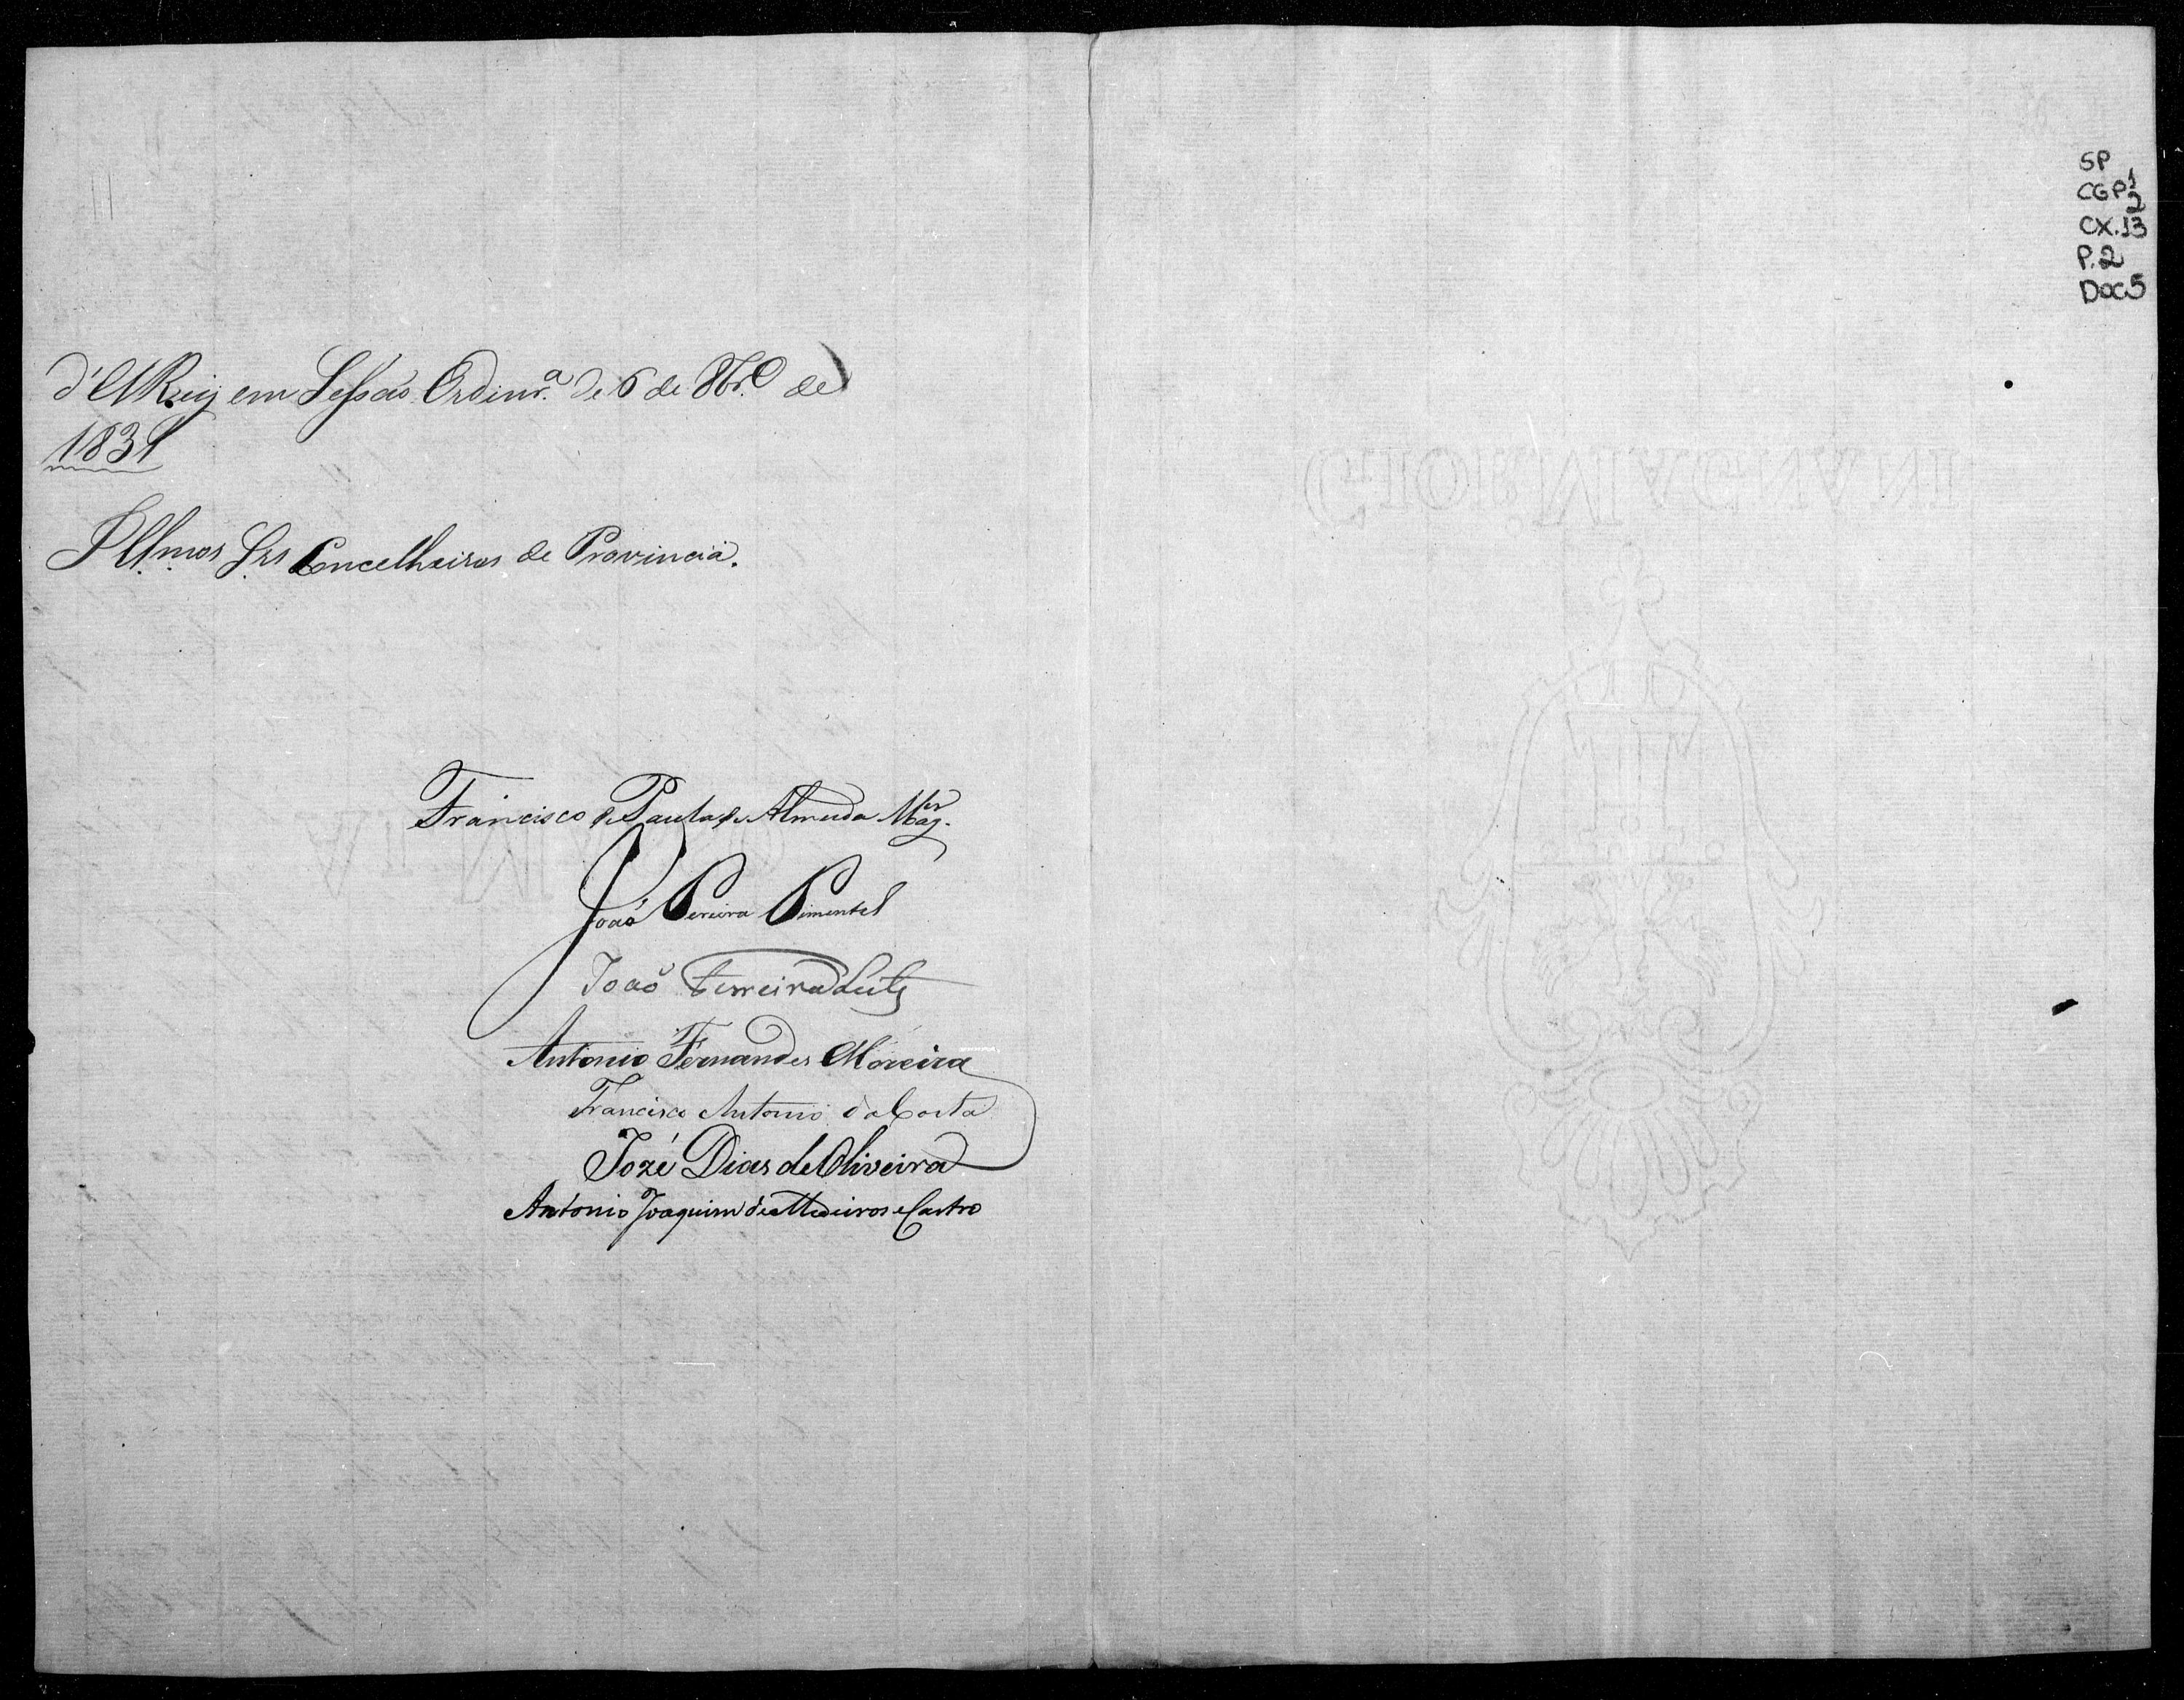 d'ElRei em Sessaõ Ordinr.ª de 6 de 8br.º de
1831
Illmos Srs Concelheiros de Provincia.
Francisco de Paula de Almeida Mag.es
Joaõ Pereira Pimentel
Joaõ Ferreira Leite
Antonio Fernandes Moreira
Francisco Antonio da Costa
Jozé Dias de Oliveira
Antonio Joaquim de Medeiros e Castro
GIOR MAGNANI
SP
CGP1
2
CX.13
P.2
DOC5